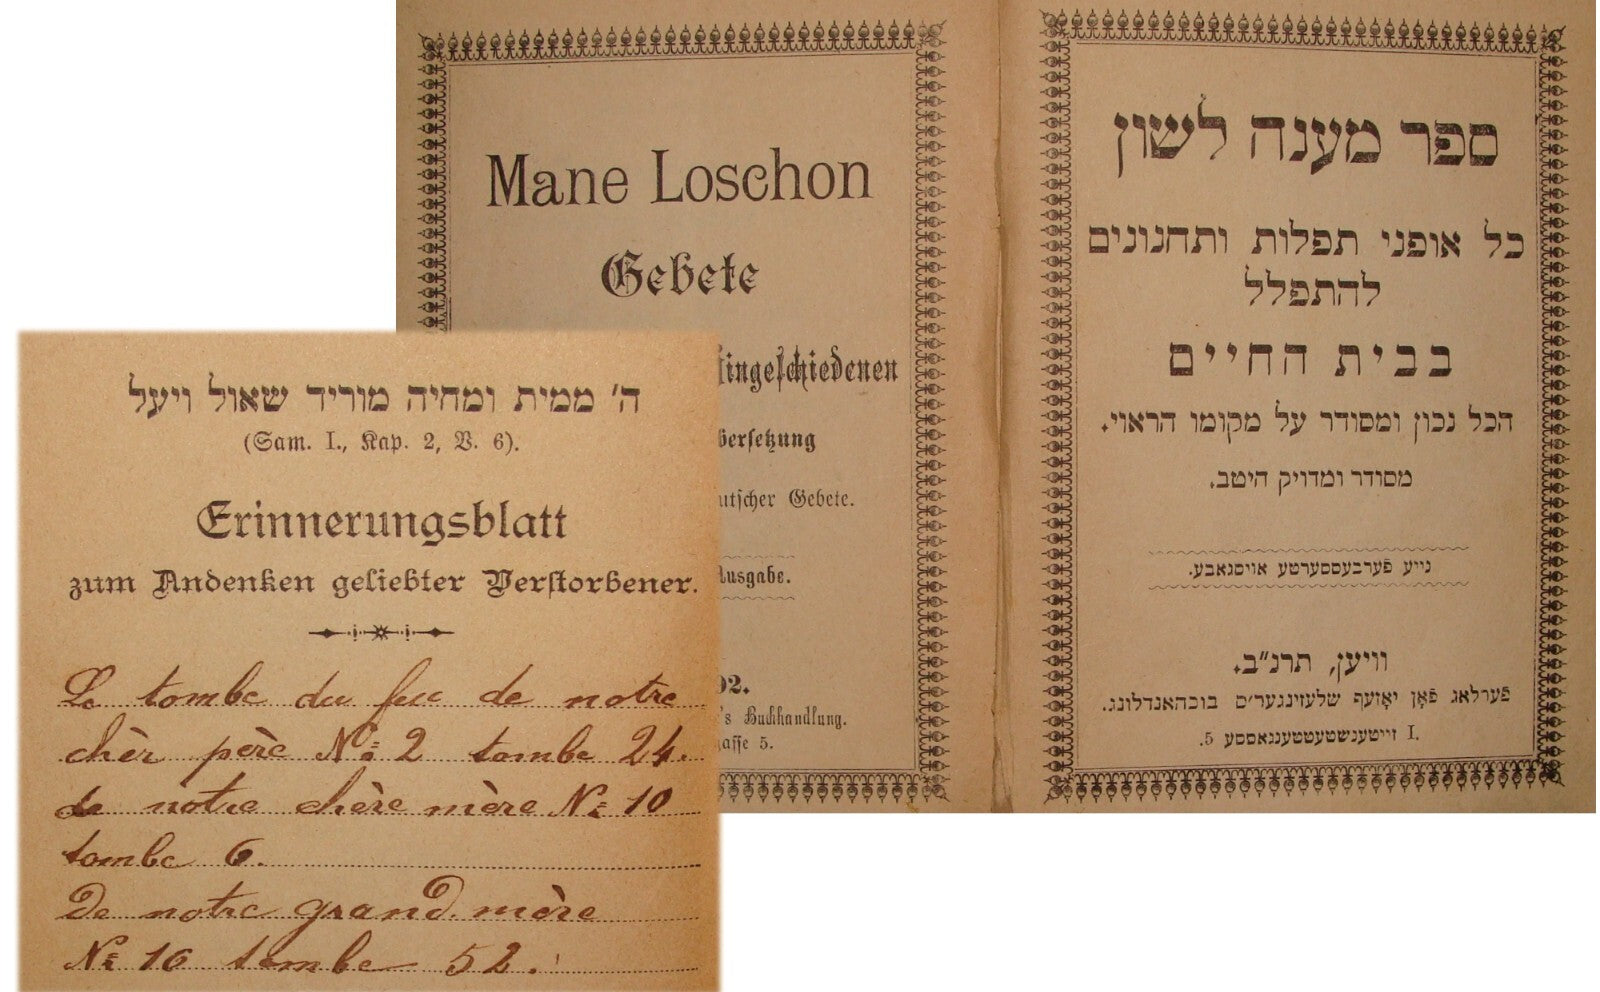 Mane Loschon
Gebete
hingeschiedenen
bersetzung
utscher Gebete.
Ausgabe.
92.
's Buchhandlung.
gasse 5.
ספר מענה לשון
כל אופני תפלות ותחנונים
להתפלל
בבית החיים
הכל נכון ומסודר על מקומו הראוי.
מסודר ומדויק היטב.
נייע פֿערבעססערטע אויסגאבע.
וויען, תרנ״ב.
פֿערלאג פֿאן יאָזעף שלעזינגער׳ס בוכהאנדלונג.
I זייטענשטעטטענגאססע 5.
ה' ממית ומחיה מוריד שאול ויעל
(Sam. I., Kap. 2, V. 6).
Erinnerungsblatt
zum Andenken geliebter Verstorbener.
Le tombe du feu de notre
chèr père Nº 2 tombe 24.
de notre chère mère Nº 10
tombe 6.
De notre grand. mère
Nº 16 tombe 52.